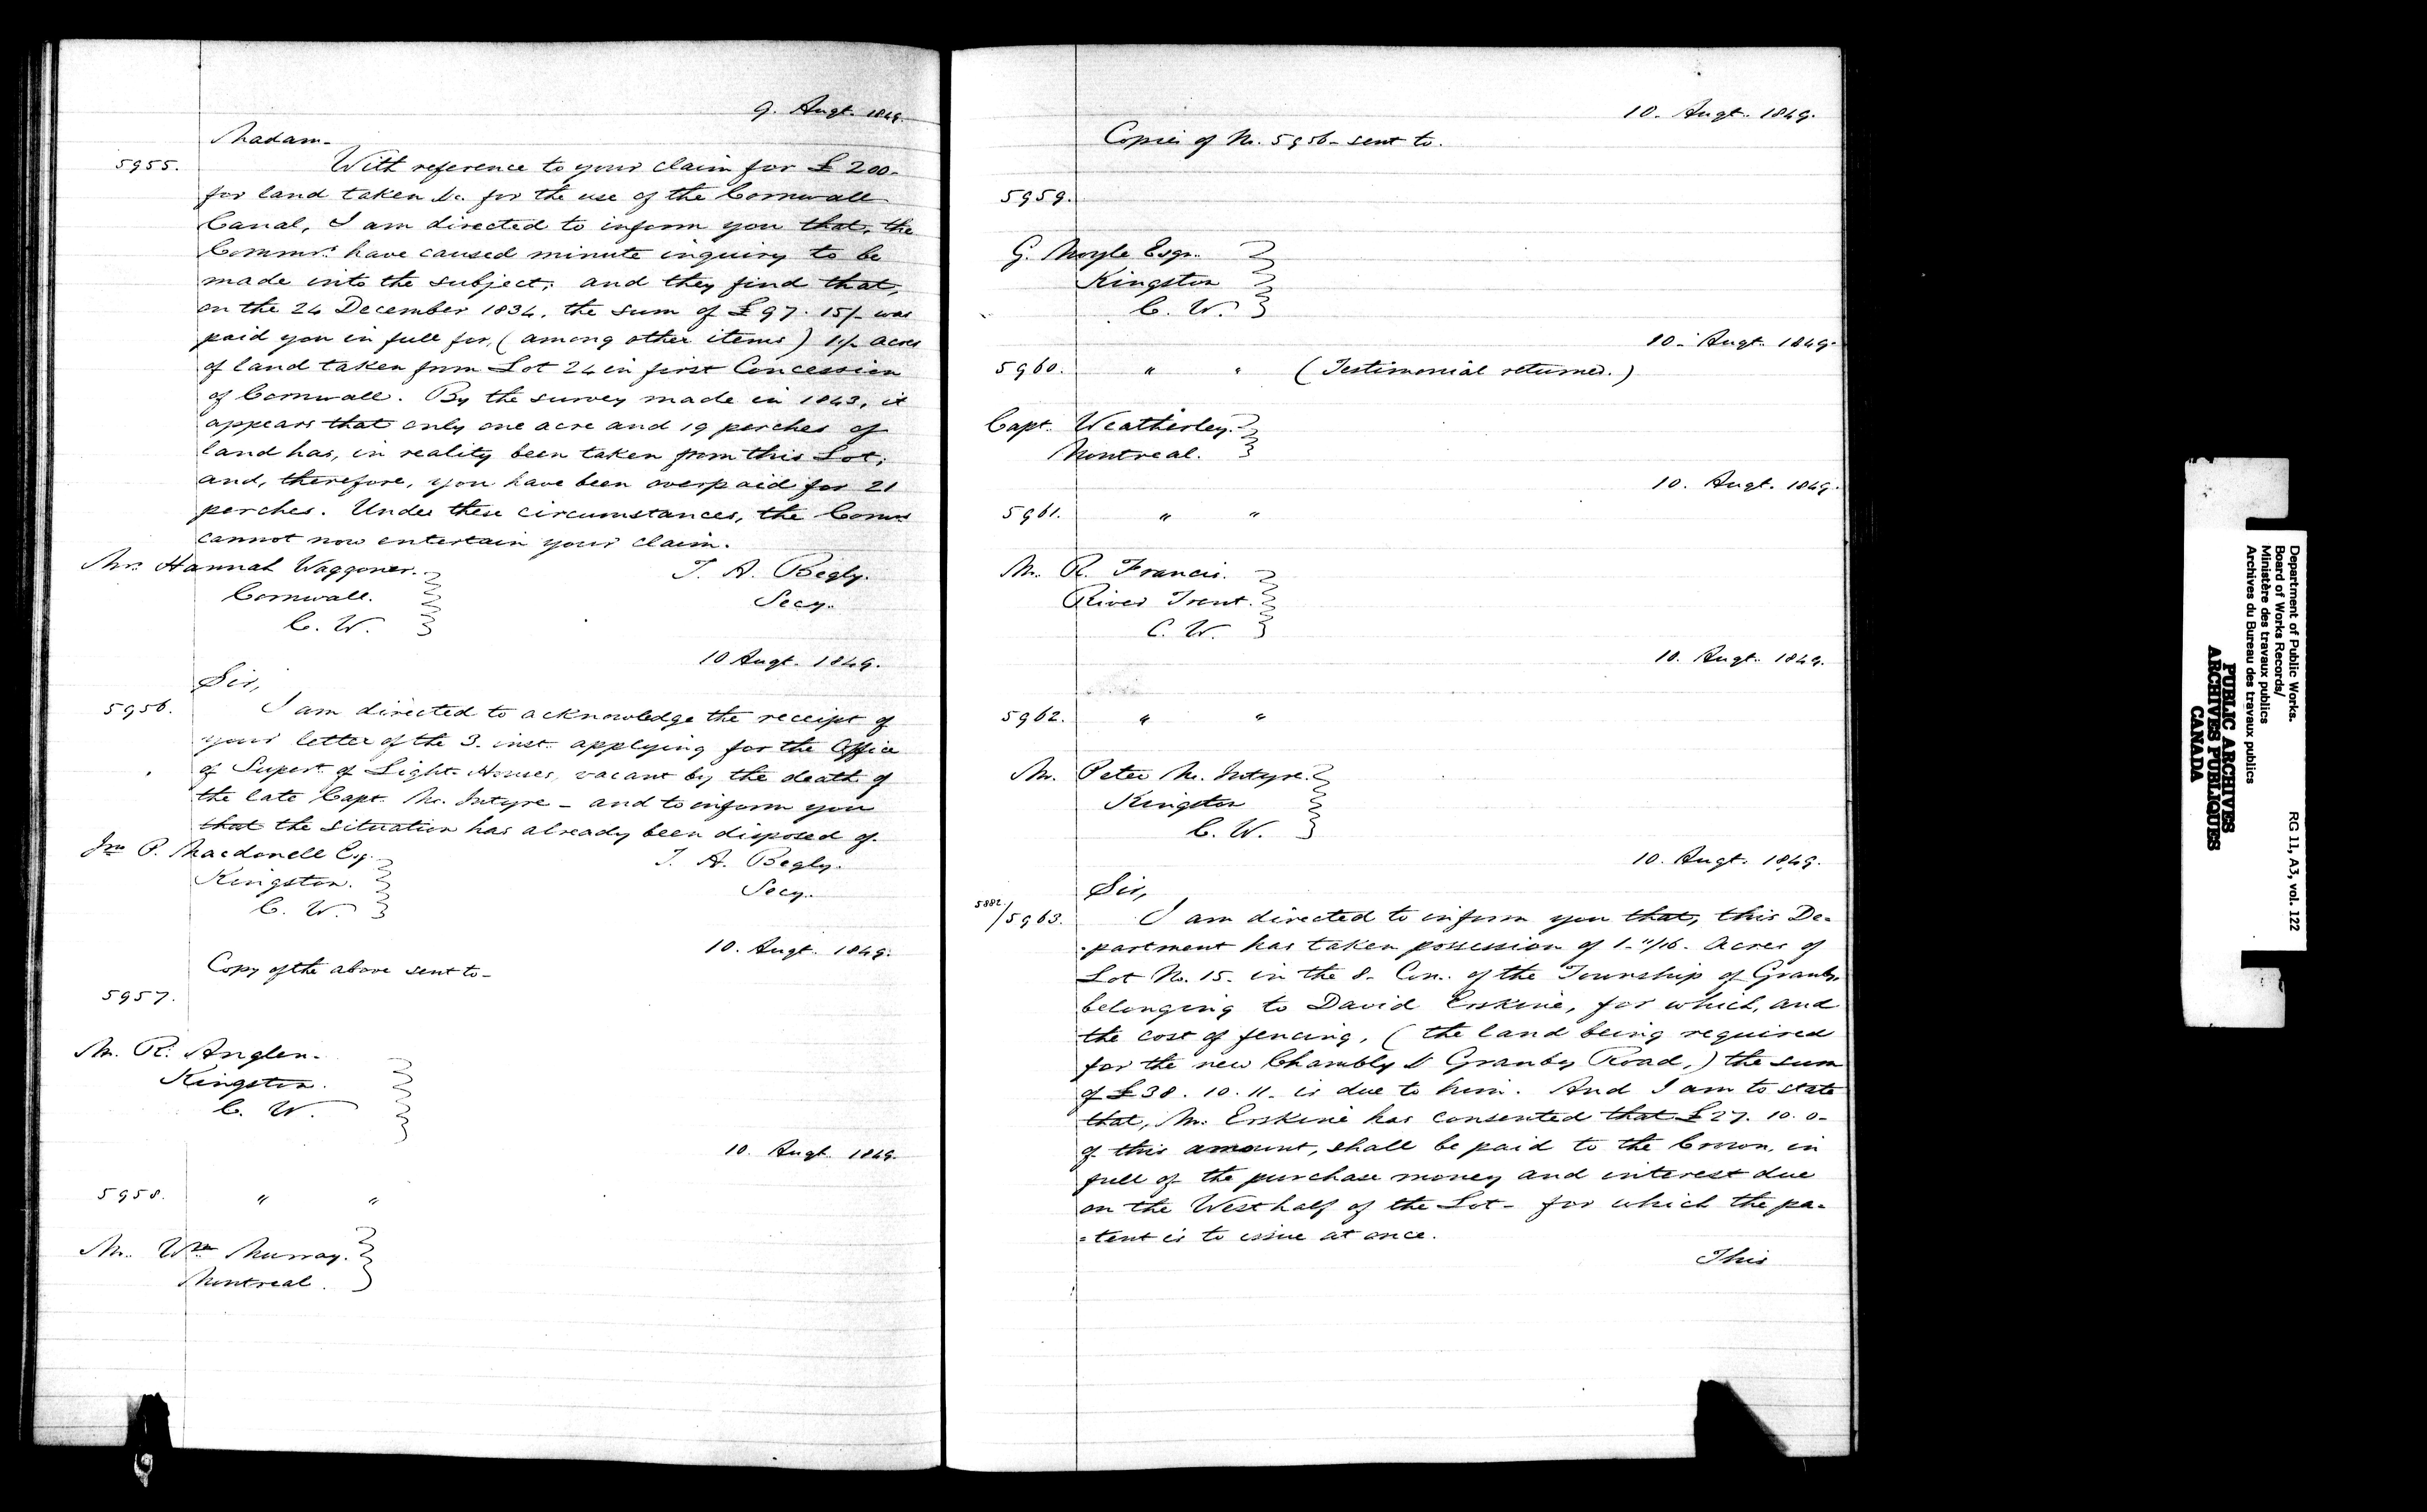 9. Augt. 1849.
Madam.
5955. With reference to your claim for £200.
for land taken &c. for the use of the Cornwall
Canal, I am directed to inform you that, the
Commrs. have caused minute inquiry to be
made into the subject; and they find that,
on the 24 December 1834, the sum of £97. 15/- was
paid you in full for, (among other items) acres
of land taken from Lot 24 in first Concession
of Cornwall. By the survey made in 1843, it
appears that only one acre and 19 perches of
land has, in reality been taken from this Lot;
and, therefore, you have been overpaid for 21
perches. Under these circumstances, the Comrs
cannot now entertain your claim.
Mrs Hannah Waggoner. T. A. Begly.
Cornwall. Secy.
C. W.
10 Augt. 1849.
Sir,
5956. I am directed to acknowledge the receipt of
your letter of the 3. inst. applying for the Office
of Supert. of Light-Houses, vacant by the death of
the late Capt. Mc. Intyre - and to inform you
that the situation has already been disposed of.
Jno P. Macdonell Esq. T. A. Begly.
Kingston. Secy.
C. W.
10. Augt. 1849.
Copy of the above sent to -
5957.
Mr. R. Anglen.
Kingston.
C. W.
10. Augt. 1849.
5958. " "
Mr. Wm Murray.
Montreal.
10. Augt. 1849.
Copies of No. 5956 - sent to.
5959.
G. Moyle Esqr.
Kingston
C. W.
10. Augt. 1849.
5960. " " (Testimonial returned.)
Capt. Weatherley.
Montreal.
10. Augt. 1849.
5961. " "
Mr. R. Francis.
River Trent.
C. W.
10. Augt. 1849.
5962. " "
Mr. Peter Mc. Intyre.
Kingston
C. W.
10. Augt. 1849.
Sir,
5882./5963. I am directed to inform you that, this De-
-partment has taken possession of 1. 11/16. Acres of
Lot No. 15. in the 8. Con. of the Township of Granby
belonging to David Erskine, for which, and
the cost of fencing, (the land being required
for the new Chambly & Granby Road,) the sum
of £38. 10. 11. is due to him. And I am to state
that, Mr. Erskine has consented that £27. 10. 0-
of this amount, shall be paid to the Crown, in
full of the purchase money and interest due
on the West half of the Lot - for which the pa-
=tent is to issue at once.
This
Department of Public Works.
Board of Works Records/
Ministère des travaux publics
Archives du Bureau des travaux publics
RG 11, A3, vol. 122
PUBLIC ARCHIVES
ARCHIVES PUBLIQUES
CANADA